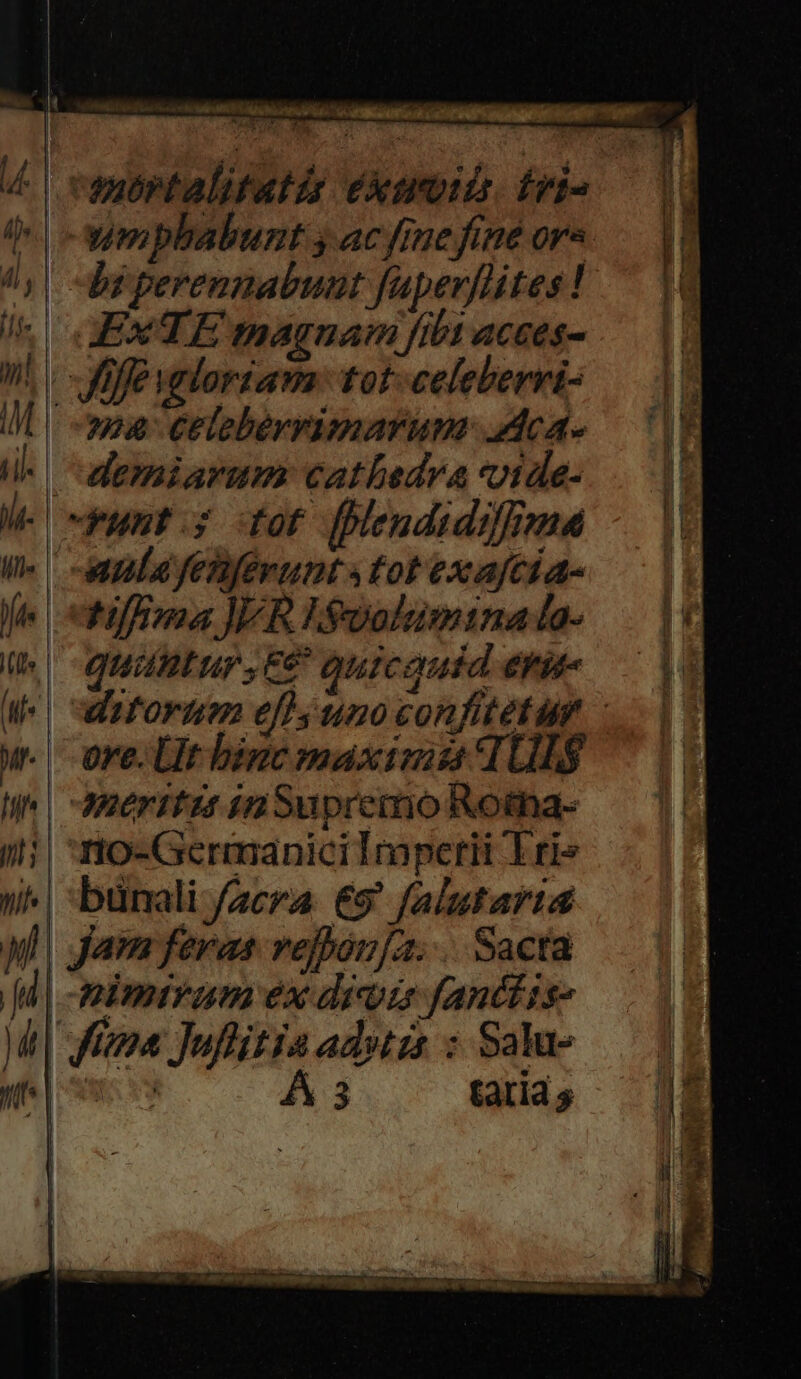 mortalitatis exuviis tri-
umphabunt, ac sine fine or-
bi perennabunt superstites!
Ex TE magnam sibi acces-
sisse gloriam tot celeberri-
ma celeberrimarum Aca-
demiarum cathedra vide-
runt; tot splendidissima
aula senserunt, tot exascia-
tissima JURIS volumina lo-
quuntur, & quicquid eru-
ditorum est, uno confitetur
ore. Ut hinc maximis TUIS
meritis in Supremo Roma-
no-Germanici Imperii Tri-
bunali sacra & salutaria
jam feras responsa. Sacra
nimirum ex divis sanctis-
sima Justitia adytis: Salu-
A 3 taria,